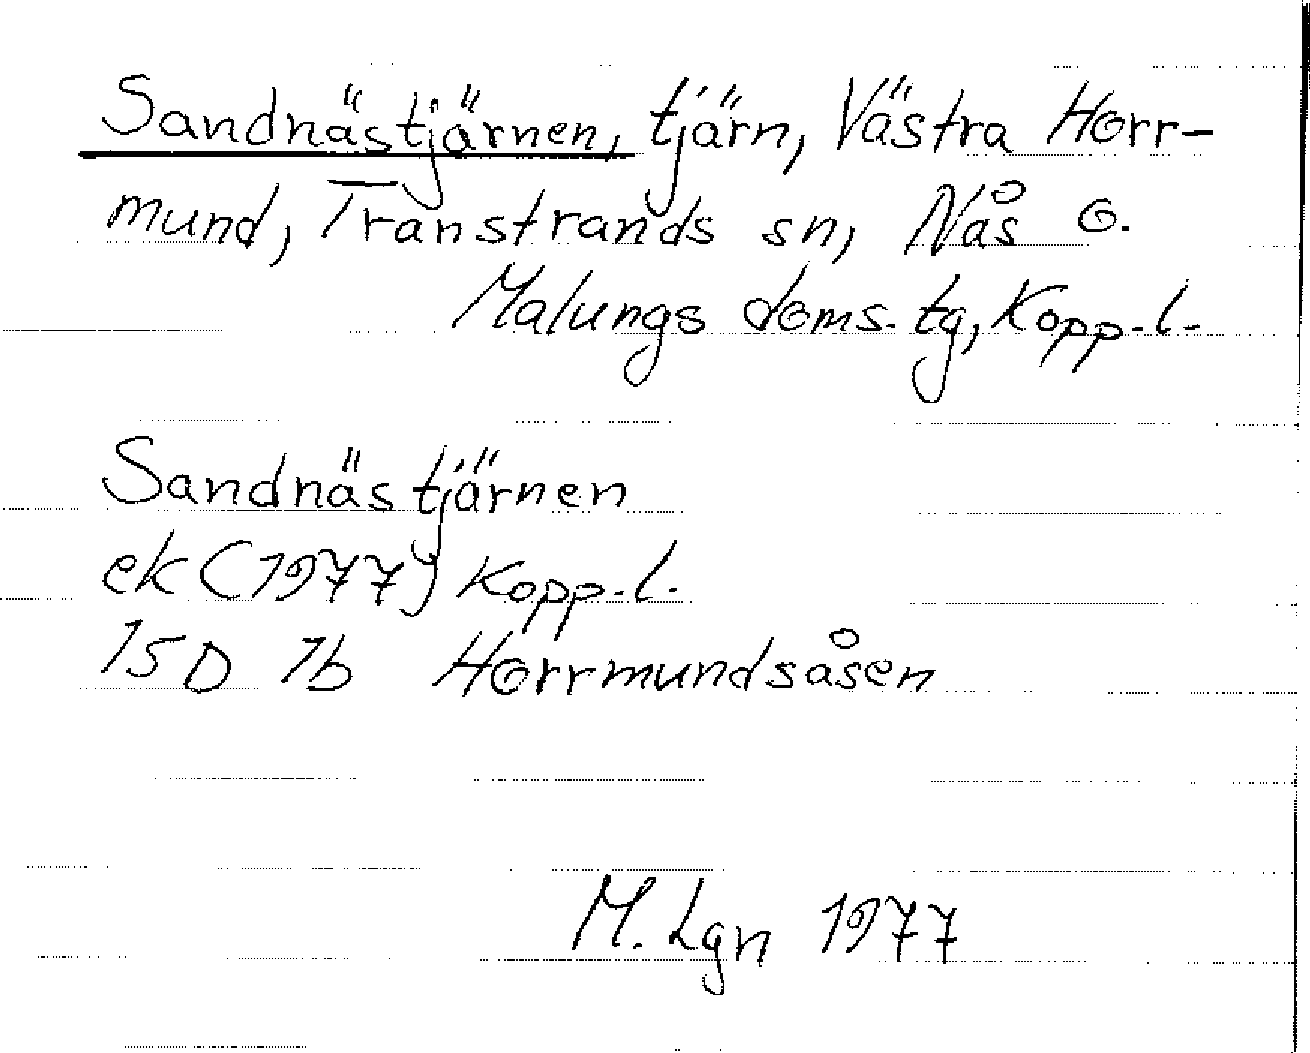 Sandnästjärnen, tjärn, Västra Horr-
mund, Transtrands sn, Nås o.
Malungs doms. tg, Kopp. l.
Sandnästjärnen
ek (1977) Kopp. l.
15D 1b Horrmundsåsen
M. Lgn 1977